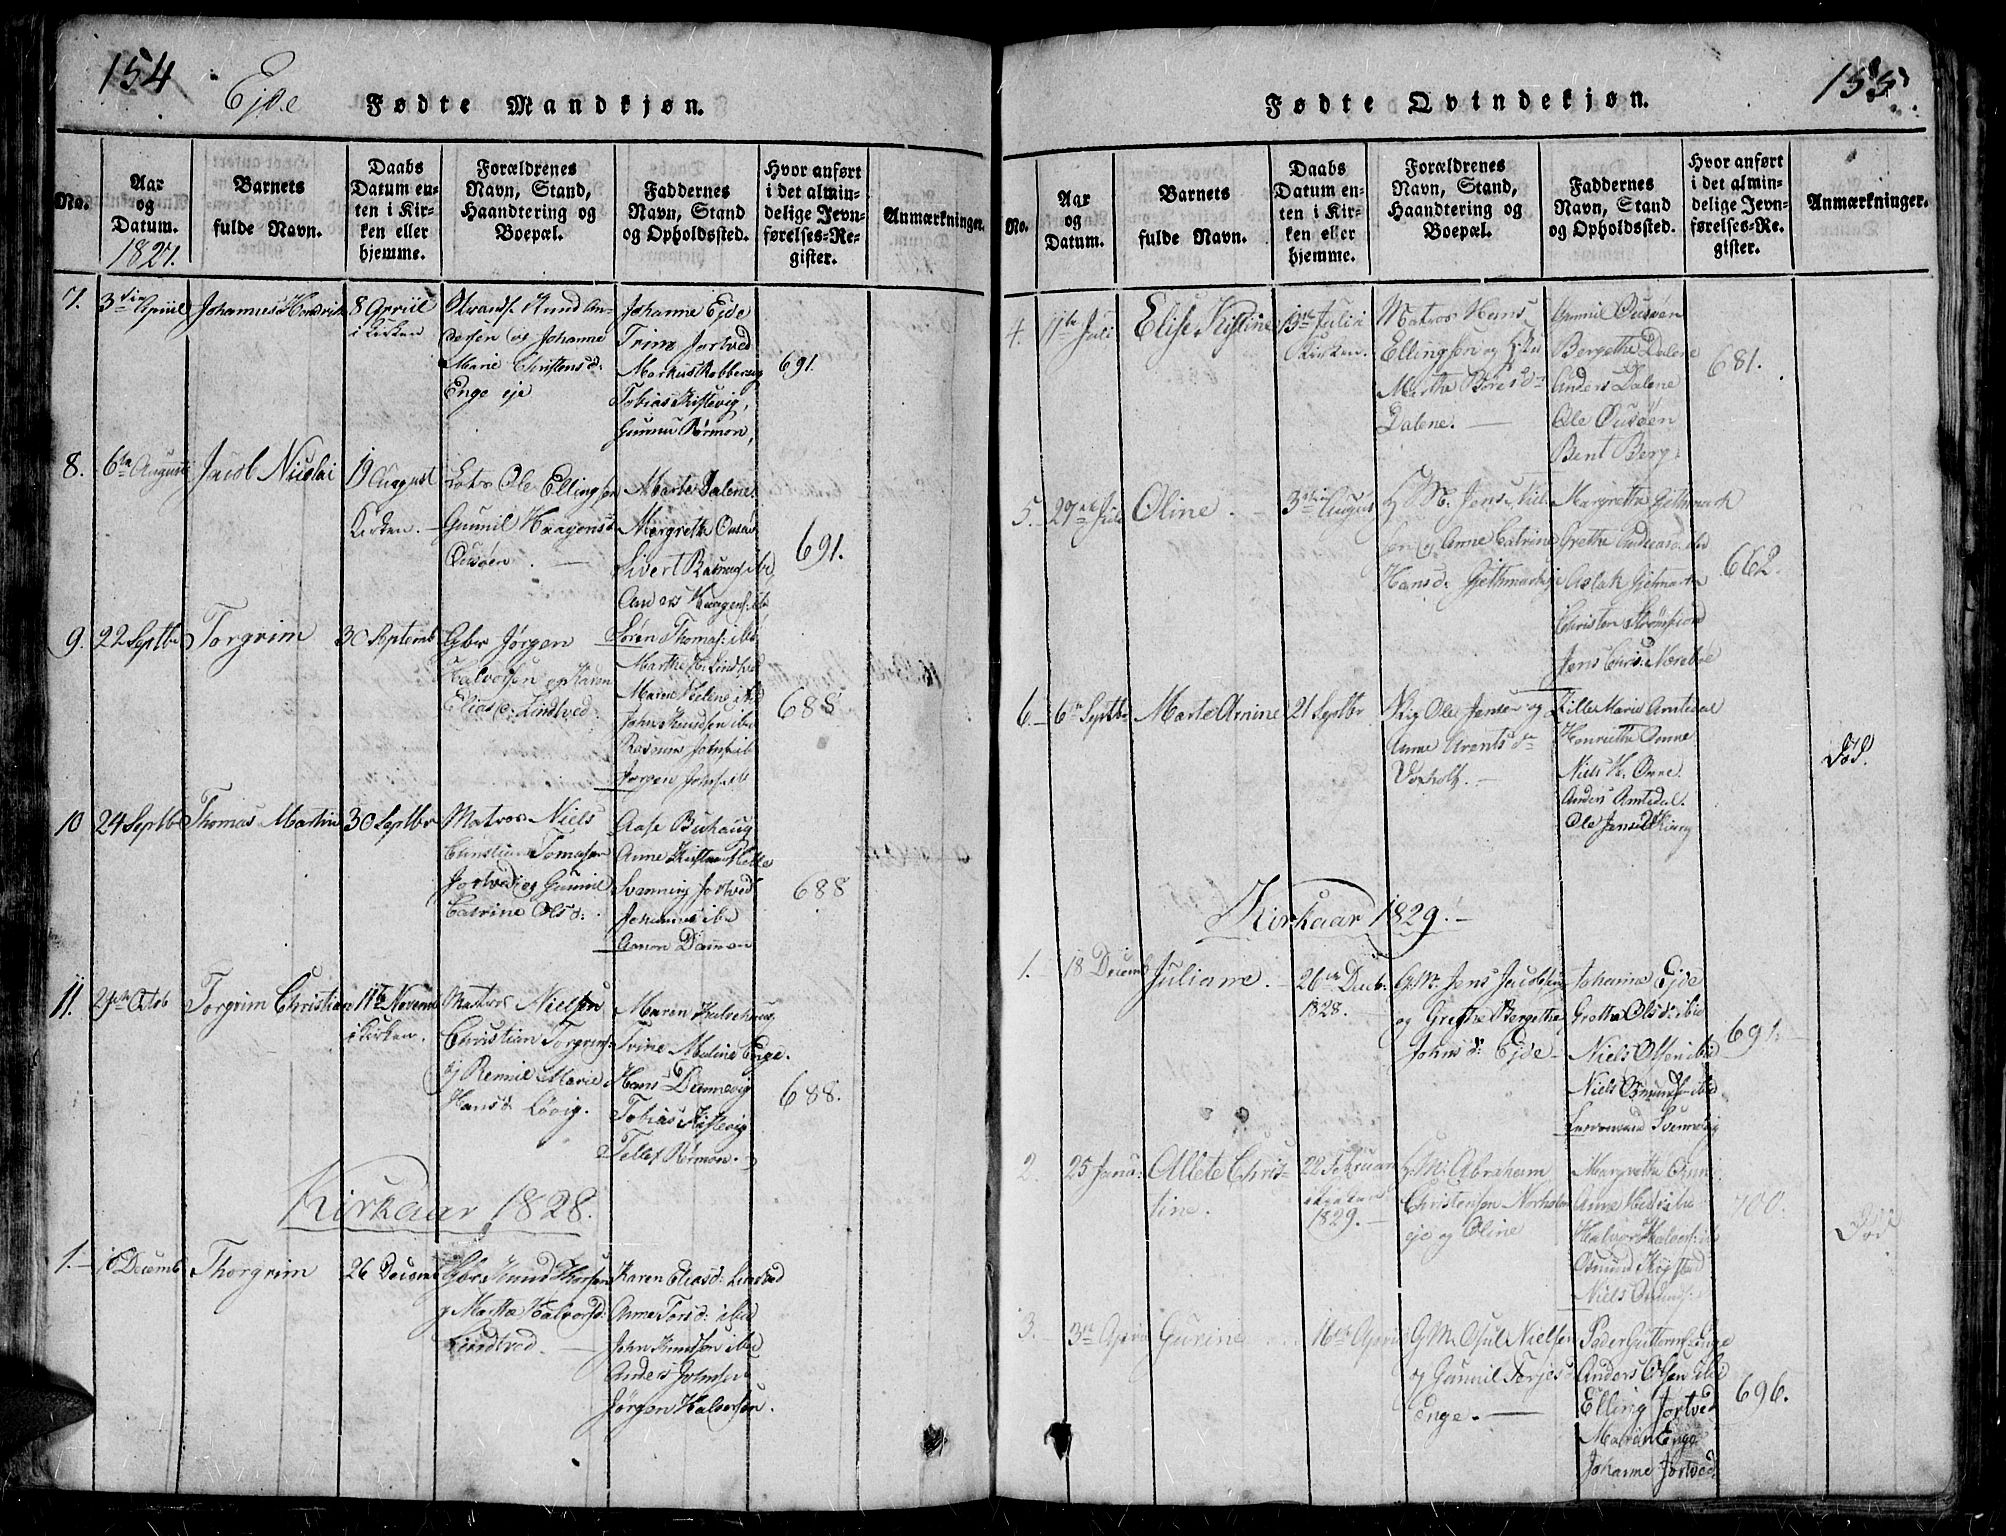 154
Ejde
Fødte Mandkjøn.
No.
Aar og Datum.
1827.
Barnets fulde Navn.
Daabs Datum enten i Kirken eller hjemme.
Forældrenes Navn, Stand, Haandtering og Boepæl.
Faddernes Navn, Stand og Opholdssted.
Hvor anført i det almindelige Jevnførelses-Register.
Anmærkninger.
7.
3die April
Johannes Hendrik
8 Apriil
i Kirken
Knud An-
dersen og Johanne
Marie Christensd:
Enge eje
Johanne Ejde
Trine Jortved
Markus Kobberaug
Tobias Kistevig,
Gunnu Rørmon,
691.
8.
6te August
Jacob Nicolai
19 August
Kirken.
Lots Ole Ellingsen
Gunnil Haagensd
Ousøen.
Marte Dalene
Margrethe Ousøe
Sivert ibd
Anders Haagens: ibd
691.
9.
22 Septbr
Torgrim
30 Septemb
Gbr Jørgen
Halvorsen og Karen
Eliasd. Lindtved.
Søren Thomas: ibd
Marthe H. Lindtved
Maren Helene ibd
John Knudsen ibd
Rasmus Johns: ib
Jørgen Johns: ib
688
10
24 Septbr
Thomas Martin
30 Septbr
Matros Niels
Christian Tomasen
Jortved og Gunnil
Catrine Olsd:
Aase Buhaug
Anne Kistine Helle
Svenning Jortved
Johannes ibd
Aanon Dannev
688
11.
Octob
Torgrim Christian
11te Novemb
i Kirken.
Matros Nielsen
Christian Torgrims:
og Remil Marie
Hansd Løvig.
Maren Kalvehaug
Trine Maline Enge.
Hans Dannevig
Tobias Kistevig
Tellef Rørmon.
688.
Kirkaar 1828.
1.
16 Decemb
Thorgrim
26 Decemb
Gbr Knud Thorsen
og Marthe Halvorsd:
Lindtved.
Karen Eliasd: Lindtved
Anne Torsd: ibd
John Knudsen ibd
Anders Johnsen
Jørgen Halvorsen.
155
Fødte Qvindekjøn.
No.
Aar og Datum.
Barnets fulde Navn.
Daabs Datum enten i Kirken eller hjemme.
Forældrenes Navn, Stand, Haandtering og Boepæl.
Faddernes Navn, Stand og Opholdssted.
Hvor anført i det almindelige Jevnførelses-Register.
Anmærkninger.
4.
11te Juli
Elise Kistine
13de Julii
Kirken.
Matros Hans
Ellingsen og
Martha Børesd
Dalene.
Gunnil Ousøen
Bergethe Dalene
Anders Dalene
Ole Ousøen
Bent Berg
681.
5.
27de Juli
Oline
3die August
G M. Jens Niel-
sen og Anne Catrine
Hansd. Gjethmark eje
Margrethe Gjethmark
Grethe Andreasd ibd
Aslak Gjetmark
Christen Strømsund
Jens Chris: Nærebøe
662.
6.
6te Septbr
Marte Arnine
21 Septbr
Ole Jensen og
Anne Arentsd
Voxholt.
Lille Marie Amtedal
Henriethe Omre
Niels H. Omre.
Anders Amtedal.
Ole Jensen
Død.
Kirkaar 1829.
1.
18 Decemb
Juliane.
26de Decb.
1828.
G.M. Jens Jacobsen
og Grethe Bergethe
Johnsd: Ejde
Johanna Ejde
Grethe Olsd: ibd
Niels Olsen ibd
Niels Osmunds: ibd
691.
2.
25 Janu:
Allete Chris-
tine.
22 Februar
i Kirken
1829.
G.M: Abraham
Christensen Narholm
eje og Oline
Margrethe Omre
Anne Hed: ibd
Halvor Halvors: ibd
Osmund Kistved
Niels Osmunds:
700.
Død
3.
3de April
Gurine
16de April
G M Osul Nielsen
og Gunnil Torjesd
Enge.
Peder Guttorms: Enge
Anders Olsen ibd
Elling Jortved
Maren Enge
Johanne Jortved.
696.